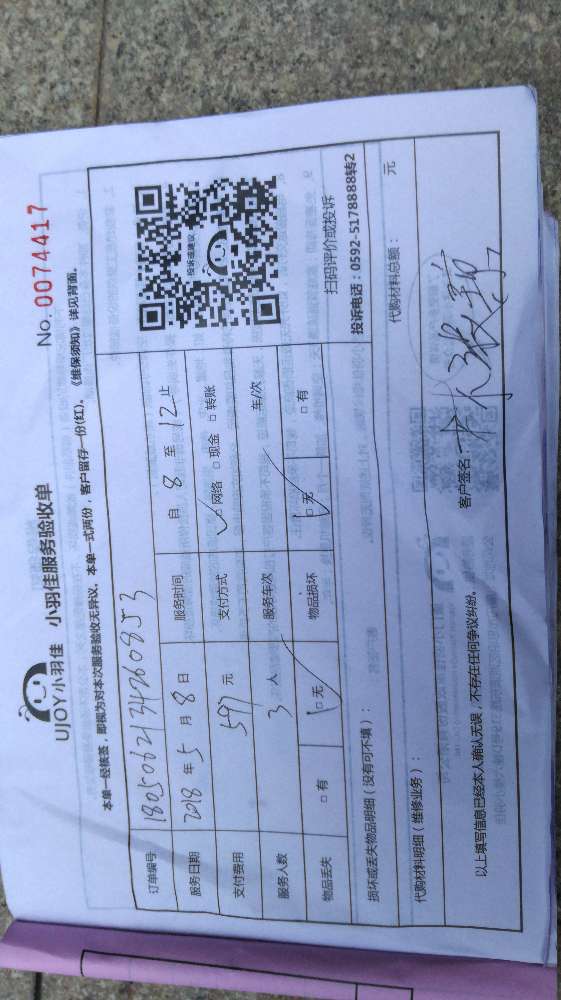 No. 0074417
UJOY小羽佳 小羽佳服务验收单
本单一经核签，即视为对本次服务验收无异议，本单一式两份，客户留存一份(红)。《维保须知》详见背面。
订单编号 1805062134260853
服务日期 2018 年 5 月 8 日 服务时间 自 8 至 12 止
支付费用 597 元 支付方式 ☑ 网络 □ 现金 □ 转账
服务人数 3 人 服务车次 车/次
物品丢失 □ 有 ☑ 无 物品损坏 ☑ 无 □ 有
投诉或建议
扫码评价或投诉
投诉电话：0592-5178888转2
损坏或丢失物品明细（没有可不填）：
代购材料明细（维修业务）： 代购材料总额： 元
以上填写信息已经本人确认无误，不存在任何争议纠纷。 客户签名：